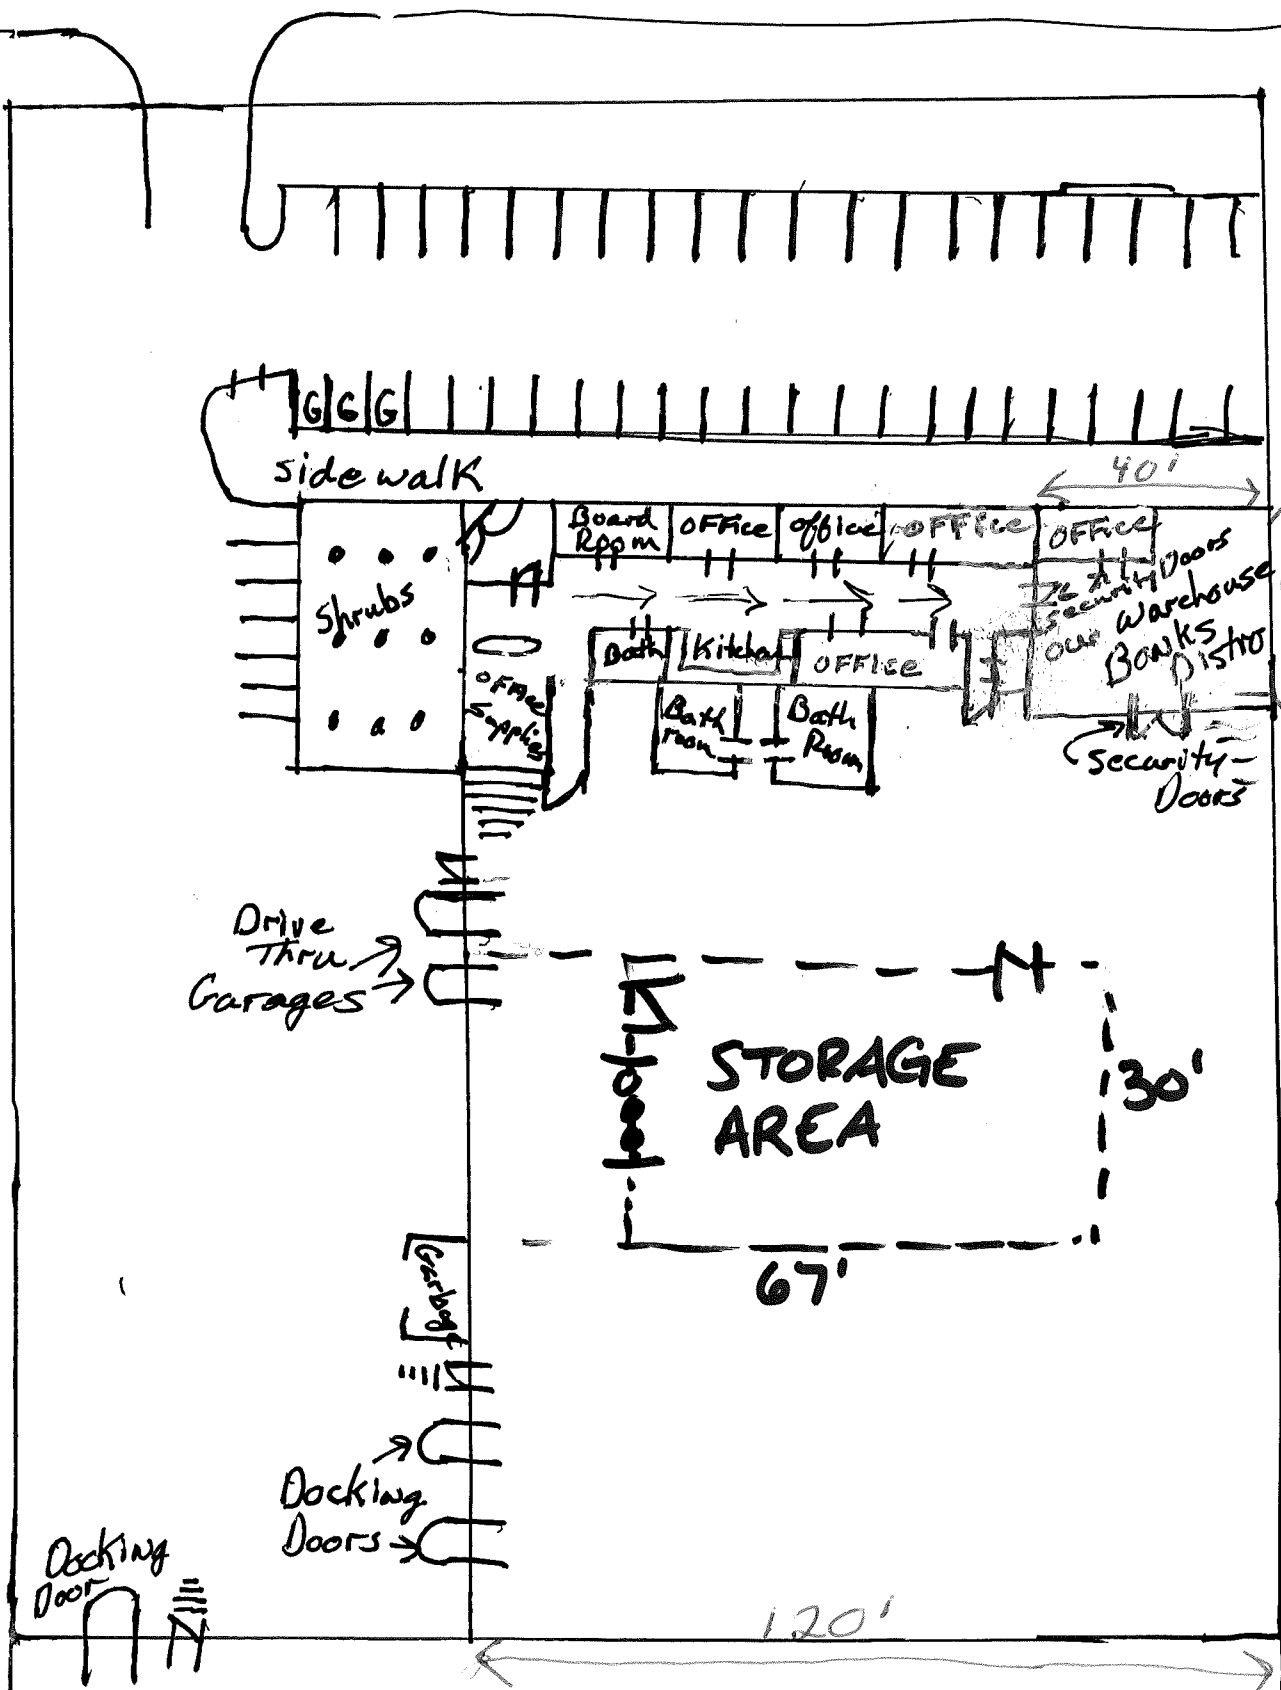 G G G
side walk
40'
Board
Room
OFFice
office
OFFice
OFFice
Security Doors
our Warehouse
Banks
Distro
Shrubs
Bath
Kitchen
OFFice
office
Supplies
Bath
room
Bath
Room
Security
Doors
Drive
Thru
Garages
STORAGE
AREA
30'
67'
Garbage
Docking
Doors
Docking
Door
120'